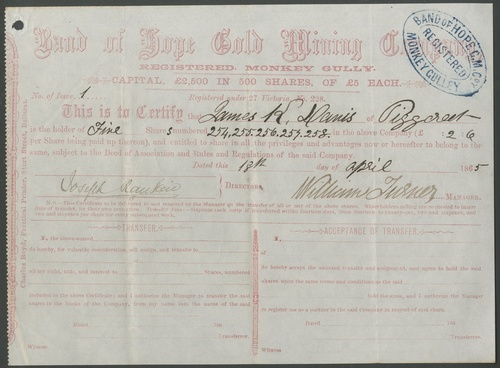 Band of Hope Gold Mining Company
REGISTERED, MONKEY GULLY.
CAPITAL, £2,500 IN 500 SHARES, OF £5 EACH.
BAND of HOPE G.M. Co
REGISTERED
MONKEY GULLEY
No. of Issue, 1 Registered under 27 Victoria, No. 228.
This is to Certify that James H. Davis of
is the holder of Five Shares 254,255.256,257,258. in the above Company (£ 2 6
per Share being paid up thereon), and entitled to share in all the privileges and advantages now or hereafter to belong to the
same, subject to the Deed of Association and Rules and Regulations of the said Company.
Dated this 18th day of April 1865
Joseph Rankin DIRECTORS. William Turner MANAGER.
TRANSFER.
I, the above-named
do hereby, for valuable consideration, sell, assign, and transfer to
all my sold, title, and interest to Shares, numbered
included in the above Certificate; and I authorise the Manager to transfer the said
shares in the books of the Company, from my name into the name of the said
Dated 186
Transferror.
Witness
ACCEPTANCE OF TRANSFER.
I,
do hereby accept the aforesaid transfer and assignment, and agree to hold the said
shares upon the same terms and conditions as the said
held the same, and I authorise the Manager
to register me as a partner in the said Company in respect of said shares.
Dated 186
Transferree.
Witness